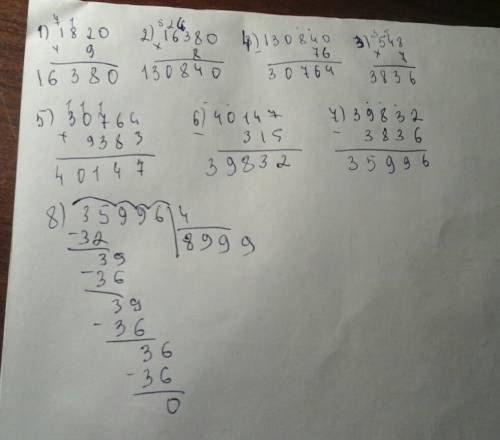 1) 1820 2) 16380 4) 130840 3) 548
× 9 × 8 - 76 × 7
16380 130840 30764 3836
5) 30764 6) 40147 7) 39832
+ 9383 - 315 - 3836
40147 39832 35996
8) 35996 4
-32 8999
39
-36
39
-36
36
-36
0